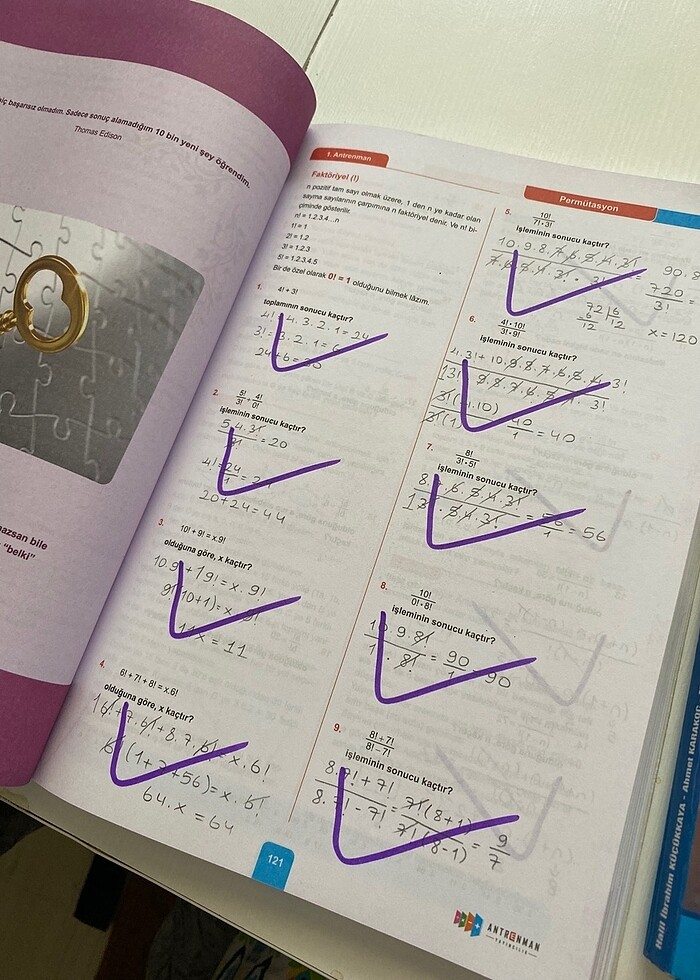 iç başarısız olmadım. Sadece sonuç alamadığım 10 bin yeni şey öğrendim.
Thomas Edison
azsan bile
"belki"
1. Antrenman
Faktöriyel (!)
n pozitif tam sayı olmak üzere, 1 den n ye kadar olan
sayma sayılarının çarpımına n faktöriyel denir. Ve n! bi-
çiminde gösterilir.
n! = 1.2.3.4...n
1! = 1
2! = 1.2
3! = 1.2.3
5! = 1.2.3.4.5
Bir de özel olarak 0! = 1 olduğunu bilmek lâzım.
1. 4! + 3!
toplamının sonucu kaçtır?
4! = 4.3.2.1 = 24
3! = 3.2.1 = 6
24+6=30
2. 5!/3! + 4!/0!
işleminin sonucu kaçtır?
5.4.3!/3! = 20
4! = 24/1 = 24
20+24=44
3. 10! + 9! = x.9!
olduğuna göre, x kaçtır?
10.9! + 1 9! = x. 9!
9!(10+1) = x. 9!
11x = 11
4. 6! + 7! + 8! = x.6!
olduğuna göre, x kaçtır?
1 6! + 7.6! + 8.7.6! = x.6!
6!(1+7+56) = x.6!
64.x = 64
Permütasyon
5. 10!/7!.3!
işleminin sonucu kaçtır?
10.9.8.7.6.5.4.3!
7.6.5.4.3!.3!
=
90.8
720
3!
72 6
6 12
12
x = 120
6. 4!.10!/3!.9!
işleminin sonucu kaçtır?
4.3! + 10.9.8.7.6.5.4.3!
13! 9.8.7.6.5.4.3!
3!(4.10)
3!(1
40/1 = 40
7. 8!/3!.5!
işleminin sonucu kaçtır?
= 56/1 = 56
8. 10!/0!.8!
işleminin sonucu kaçtır?
10.9.8!/1.8! = 90/1 = 90
9. 8! + 7!/8! - 7!
işleminin sonucu kaçtır?
8.7! + 7!/8.7! - 7! = 7!(8+1)/7!(8-1) = 9/7
121
ANTRENMAN
YAYINCILIK
Halil İbrahim KÜÇÜKKAYA - Ahmet KARAKOÇ